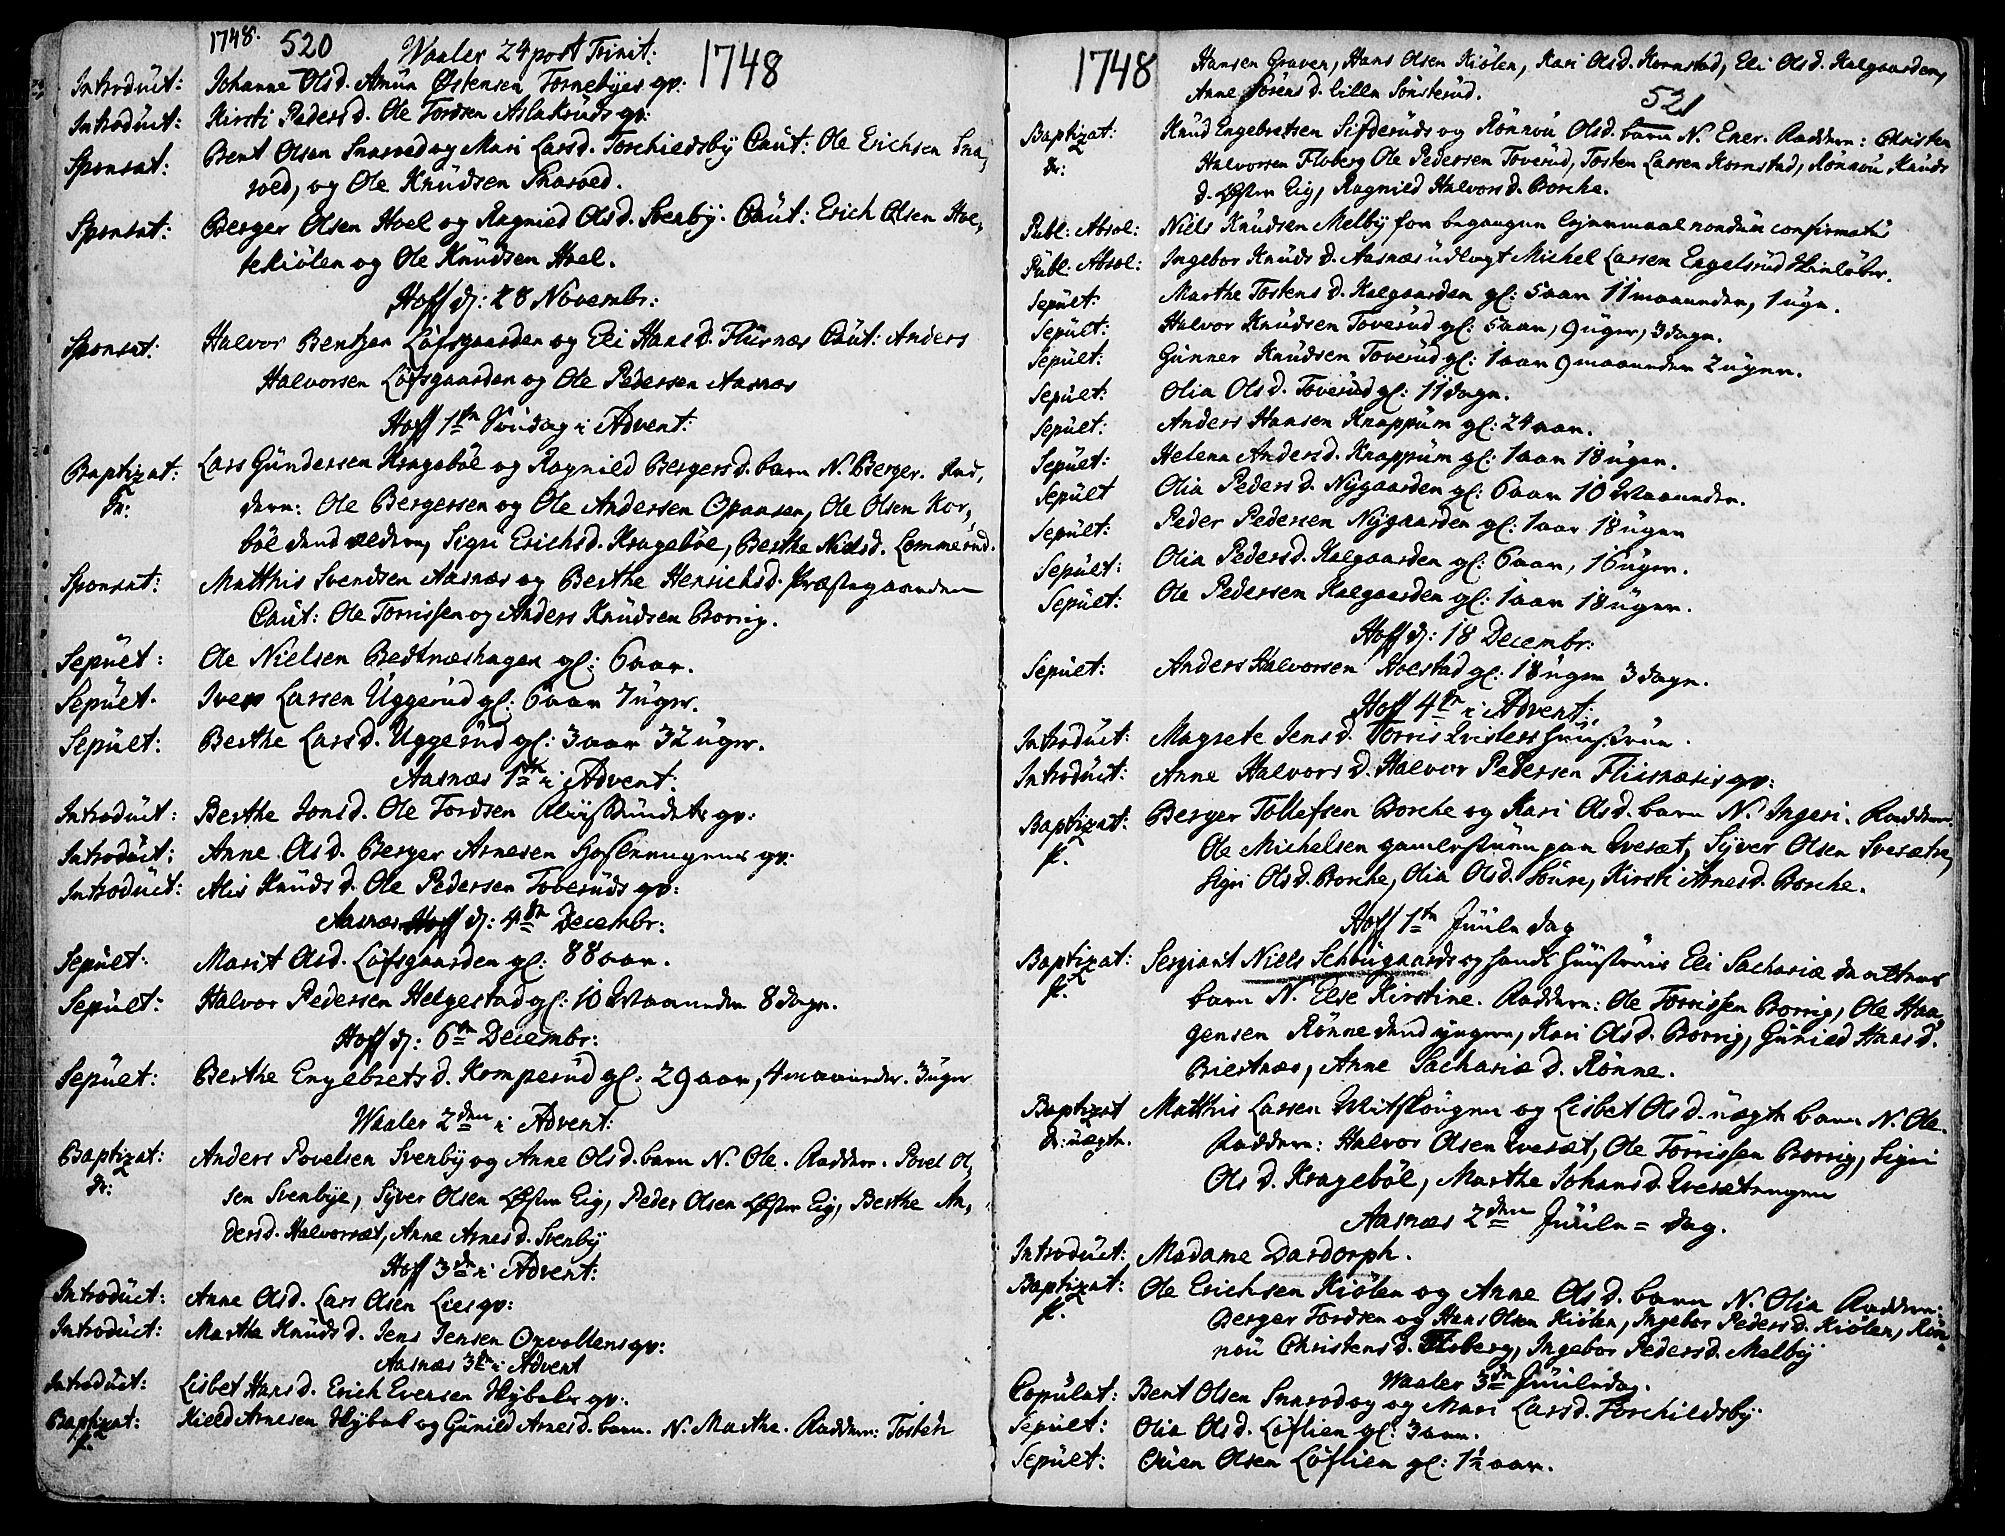 1748. 520 Waaler 24 post Trinit: 1748
Introduct: Johanne Olsd. Amun Østensen Tornebyes qv:
Introduct: Kirsti Pedersd. Ole Tordsen Aslaksruds qv:
Sponsat: Bent Olsen Snaroed og Mari Larsd. Torchildsby Caut: Ole Erichsen Sna,
roed, og Ole Knudsen Snaroed.
Sponsat: Berger Olsen Hoel og Ragnild Olsd. Svenby. Caut: Erich Olsen Hoe,
lekiølen og Ole Knudsen Hoel.
Hoff d: 28 Novembr:
Sponsat: Halvor Bentzen Løfsgaarden og Eli Hansd. Flisnæs Caut: Anders
Halvorsen Løfsgaarden og Ole Pedersen Aasnæs
Hoff 1te Søndag i Advent:
Baptizat: Lars Gundersen Kragebøl og Ragnild Bergersd. barn N. Berger. Fad,
Dr: dere: Ole Bergersen og Ole Andersen Opaasen, Ole Olsen Kor,
bøl dend eldere, Sigri Erichsd. Kragebøl, Berthe Nielsd. Lommerud.
Sponsat: Matthis Svendsen Aasnæs og Berthe Henrichsd. Præstegaarden
Caut: Ole Torrissen og Anders Knudsen Borrig.
Sepult: Ole Nielsen Bedtnæshagen gl: 6 aar.
Sepult. Iver Larsen Uggerud gl: 6 aar 7 uger.
Sepult: Berthe Larsd. Uggerud gl: 3 aar 32 uger.
Aasnæs 1te i Advent:
Introduct: Berthe Jonsd. Ole Tordsen qv:
Introduct: Anne Olsd. Berger Arnesen qv:
Introduct: Alis Knudsd. Ole Pedersen Toveruds qv:
Aasnæs d: 4de Decembr:
Sepult. Marit Olsd. Løfsgaarden gl: 88 aar.
Sepult: Halvor Pedersen Helgestad gl: 10 Maaneder 8 dage.
Hoff d: 6te Decembr:
Sepult: Berthe Engebretsd. Komperud gl: 29 aar, 4 maaneder. 3 uger
Waaler 2den i Advent:
Baptizat: Anders Povelsen Svenby og Anne Olsd. barn N. Ole. Faddere. Povel Ol,
Dr: sen Svenbye, Syver Olsen Øster Eig, Peder Olsen Øster Eig, Berthe An,
dersd. Halvorsæt, Anne Arnesd. Svenby
Hoff 3de i Advent:
Introduct: Anne Olsd. Lars Olsen Lies qv:
Introduct: Marthe Knudsd. Jens Jensen Onvoldens qv:
Aasnæs 3de i Advent
Introduct: Lisbet Hansd. Erich Evensen Hybels qv:
Baptizat: Kield Arnesen Hybel og Gunild Arnesd. barn. N. Marthe. Faddere: Tosten
P.
1748 Hansen Graven, Hans Olsen Kiølen, Kari Olsd. Kornstad, Eli Olsd. Kalgaarden,
Anne Sørensd. Lille Sønsterud. 521
Baptizat: Knud Engebretsen Sifderuds og Rønnou Olsd. barn N. Ener. Faddere: Christen
Dr: Halvorsen Floberg Ole Pedersen Toverud, Tosten Larsen Kornstad, Rønnou Knuds
d. Øster Eig, Ragnild Halvorsd. Borche.
Publ: Absol: Niels Knudsen Melby for begangen lejermaal nondum confirmatus
Publ: Absol: Ingebor Knudsd. Aasnæs udlagt Michel Larsen Engelsrud
Sepult: Marthe Tostensd. Kalgaarden gl: 5 aar 11 maaneder, 1 uge.
Sepult: Halvor Knudsen Toverud gl: 5 aar, 9 uger, 3 dage.
Sepult: Gunner Knudsen Toverud gl: 1 aar 9 maaneder 2 uger.
Sepult: Olia Olsd. Toverud gl: 11 dage.
Sepult: Anders Hansen Knappum gl: 24 aar.
Sepult: Helena Andersd. Knappum gl: 1 aar 18 uger.
Sepult Olia Pedersd. Nygaarden gl: 6 aar 10 Maaneder.
Sepult: Peder Pedersen Nygaarden gl: 1 aar 18 uger
Sepult: Olia Pedersd. Kalgaarden gl: 6 aar, 16 uger.
Sepult: Ole Pedersen Kalgaarden gl: 1 aar 18 uger.
Hoff d: 18 Decembr:
Sepult: Anders Halvorsen Holstad gl: 18 uger 3 dage.
Hoff 4de i Advent:
Introduct: Magrete Jensd. Torris Qvislers hustrue.
Introduct: Anne Halvorsd. Halvor Pedersen Flisnæsis qv:
Baptizat: Berger Tollefsen Borche og Kari Olsd. barn N. Ingeri. Faddere.
P. Ole Michelsen paa Qvesæt, Syver Olsen Svesætre,
Sigri Olsd. Borche, Olia Olsd. Soure, Kirsti Arnesd. Borche.
Hoff 1te Juule dag
Baptizat: Sergiant Niels Schougaards og hands hustrues Eli Sachariæ datters
P. barn N. Else Kirstine. Faddere: Ole Torrissen Borrig, Ole Haa,
gensen Rønne dend yngere, Kari Olsd. Borrig, Gunild Hansd.
Briestnæs, Anne Sachariæ d. Rønne.
Baptizat Matthis Larsen Mitskougen og Lisbet Olsd. uægte barn N. Ole.
Dr: uægte. Faddere: Halvor Olsen Qvesæt, Ole Torrissen Borrig, Sigri
Olsd. Kragebøl, Marthe Johansd. Qvesætengen
Aasnæs 2den Juule = dag.
Introduct: Madame Dardorph.
Baptizat: Ole Erichsen Kiølen og Anne Olsd. barn N. Olia Faddere:
P. Berger Tordsen og Hans Olsen Kiølen, Ingebor Pedersd. Kiølen, Røn
nou Christensd. Floberg, Ingebor Pedersd. Melby
Waaler 3de Juuledag.
Copulat: Bent Olsen Snaroed og Mari Larsd. Torchildsby
Sepult: Olia Olsd. Løflien gl: 3 aar.
Sepult: Olsen Løflien gl: 1½ aar.